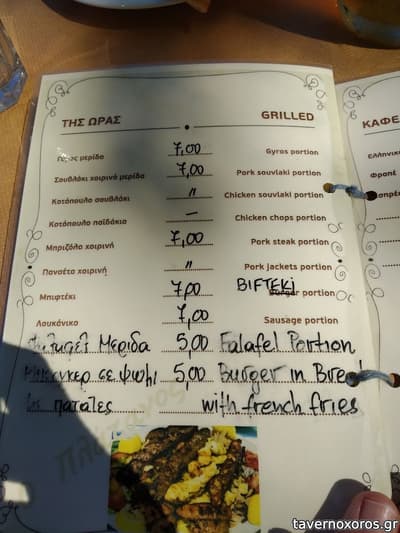 ΤΗΣ ΩΡΑΣ GRILLED
Γύρος μερίδα 7,00 Gyros portion
Σουβλάκι χοιρινό μερίδα 7,00 Pork souvlaki portion
Κοτόπουλο σουβλάκι " Chicken souvlaki portion
Κοτόπουλο παϊδάκια — Chicken chops portion
Μπριζόλα χοιρινή 7,00 Pork steak portion
Πανσέτα χοιρινή " Pork jackets portion
Μπιφτέκι 7,00 BIFTEKI portion
Λουκάνικο 7,00 Sausage portion
Φαλαφελ Μεριδα 5,00 Falafel Portion
σε ψωμι 5,00 Burger in Bread
πατατες with french fries
Πλάτανος
ΚΑΦΕ
Ελληνικό
Φραπέ
tavernoxoros.gr